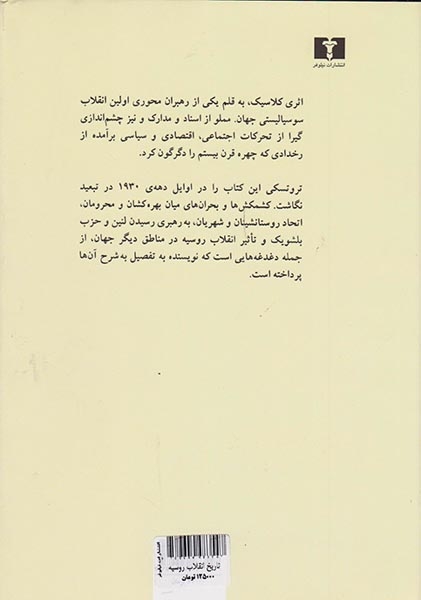 انتشارات نیلوفر
اثری کلاسیک، به قلم یکی از رهبران محوری اولین انقلاب
سوسیالیستی جهان. مملو از اسناد و مدارک و نیز چشم‌اندازی
گیرا از تحرکات اجتماعی، اقتصادی و سیاسی برآمده از
رخدادی که چهره قرن بیستم را دگرگون کرد.
تروتسکی این کتاب را در اوایل دهه‌ی ۱۹۳۰ در تبعید
نگاشت. کشمکش‌ها و بحران‌های میان بهره‌کشان و محرومان،
اتحاد روستانشینان و شهریان، به رهبری رسیدن لنین و حزب
بلشویک و تأثیر انقلاب روسیه در مناطق دیگر جهان، از
جمله دغدغه‌هایی است که نویسنده به تفصیل به شرح آن‌ها
پرداخته است.
تاریخ انقلاب روسیه
۱۲۵۰۰۰ تومان